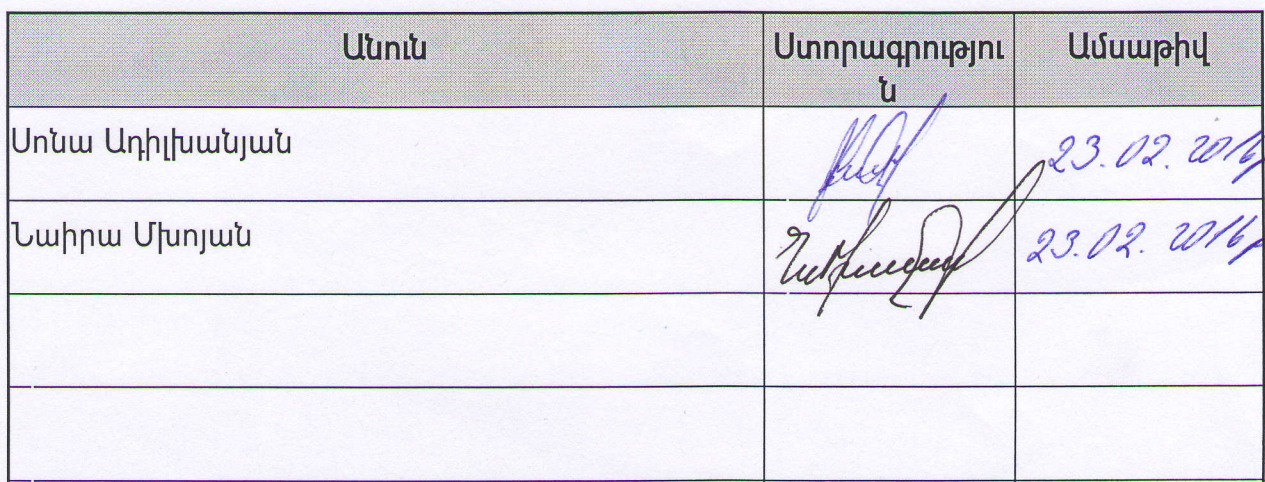 Անուն Ստորագրությու Ամսաթիվ
ն
Սոնա Ադիլխանյան 23.02.2016թ
Նաիրա Մխոյան 23.02.2016թ